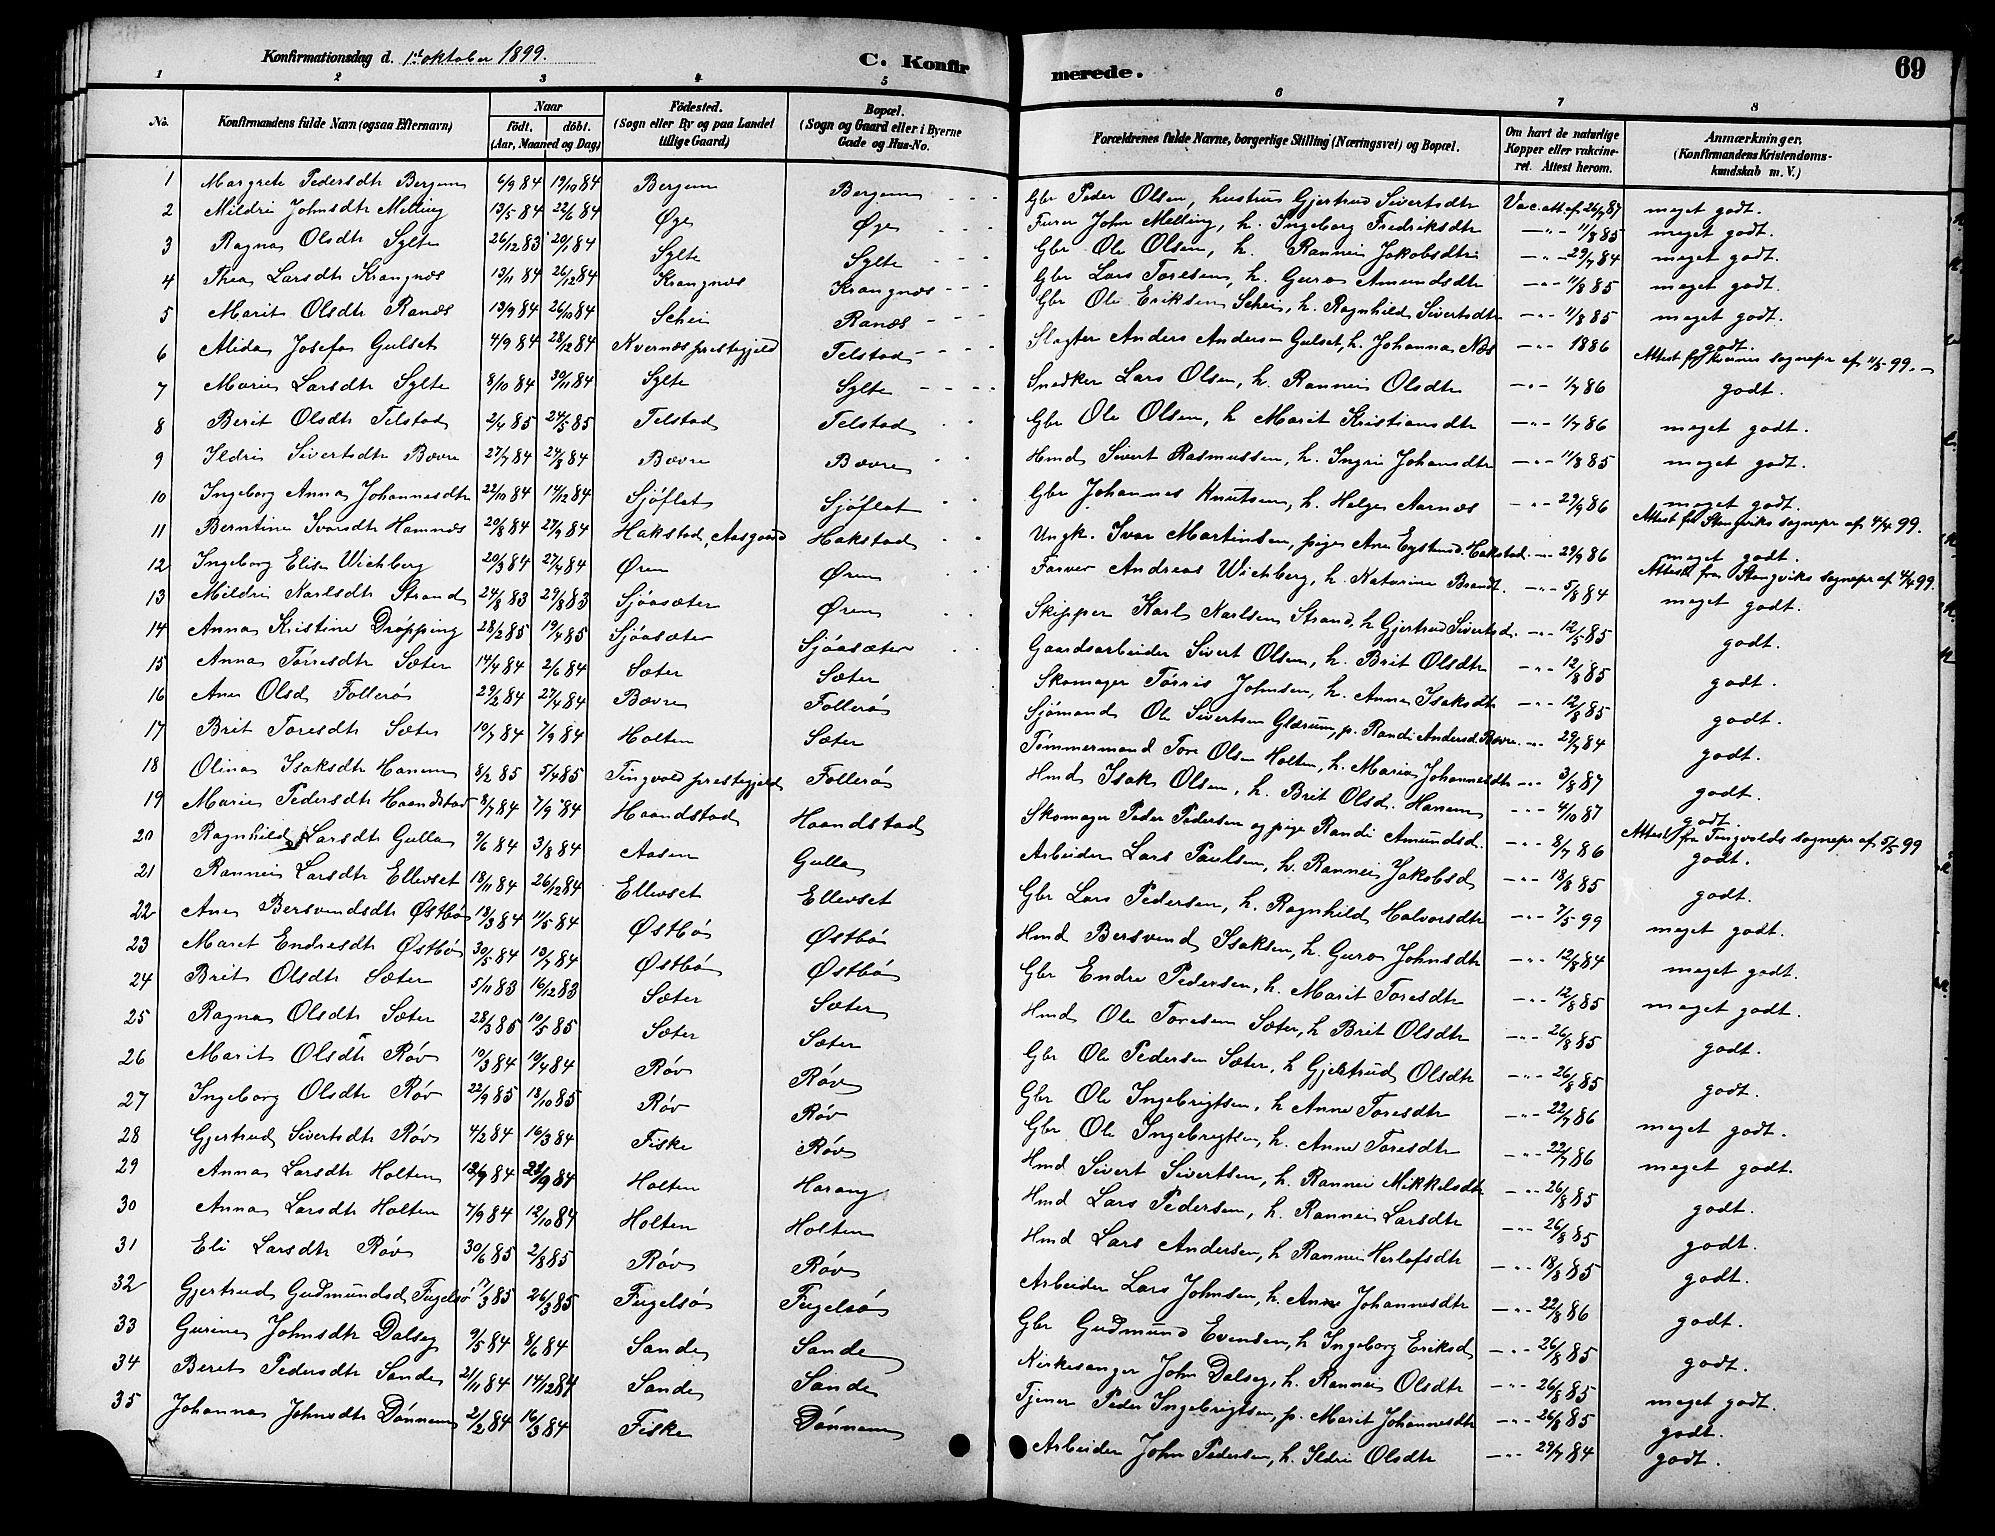 Konfirmationsdag d. 1ste oktober 1899. C. Konfirmerede. 69
1 2 3 4 5 6 7 8
No. Konfirmandens fulde Navn (ogsaa Efternavn) Naar födt. döbt. (Aar, Maaned og Dag) Födested. (Sogn eller By og paa Landet tillige Gaard) Bopæl. (Sogn og Gaard eller i Byerne Gade og Hus-No. Forældrenes fulde Navne, borgerlige Stilling (Næringsvei) og Bopæl. Om havt de naturlige Kopper eller vakcineret. Attest herom. Anmærkninger. (Konfirmandens Kristendomskundskab m. V.)
1 Margrete Pedersdtr Bergem 6/9 84 19/10 84 Bergem Bergem Gbr Peder Olsen, hustru Gjertrud Sivertsdtr Vac. att. af 26/7 87 meget godt.
2 Mildri Johnsdtr Melling 13/5 84 22/6 84 Øye Øye Furer John Melling, h. Ingeborg Fredriksdtr -"- 11/8 85 meget godt.
3 Ragna Olsdtr Sylte 26/12 83 20/1 84 Sylte Sylte Gbr Ole Olsen, h. Rannei Jakobsdtr -"- 29/7 84 meget godt.
4 Thea Larsdtr Krangnæs 13/11 84 26/12 84 Krangnæs Krangnæs Gbr Lars Toresen, h. Guro Amundsdtr -"- 11/8 85 meget godt.
5 Marit Olsdtr Ranæs 13/9 84 26/10 84 Schei Ranæs Gbr Ole Eriksen Schei, h. Ragnhild Sivertsdtr -"- 11/8 85 meget godt.
6 Alida Josefa Gulset 4/9 84 28/12 84 Kvernæs prestegjeld Telstad Slagter Anders Andersen Gulset, h. Johanna Næs -"- 1886 godt. Attest fra Kvernes sognepr af 11/5 99.
7 Marie Larsdtr Sylte 8/10 84 30/11 84 Sylte Sylte Snedker Lars Olsen, h. Rannei Olsdtr -"- 1/7 86 godt.
8 Berit Olsdtr Telstad 2/4 85 24/5 85 Telstad Telstad Gbr Ole Olsen, h Marit Kristiansdtr -"- 1/7 86 meget godt.
9 Ildri Sivertsdtr Bævre 27/7 84 24/8 84 Bævre Bævre Hmd Sivert Rasmussen, h. Ingri Johansdtr -"- 11/8 85 meget godt.
10 Ingeborg Anna Johannesdtr 22/10 84 14/12 84 Sjöflat Sjöflat Gbr Johannes Knutsen, h. Helga Aarnes -"- 29/9 86 meget godt. Attest fra Stangviks sognepr af 4/4 99.
11 Berntine Ivarsdtr Hamnæs 20/8 84 27/9 84 Hakstad, Aasgaard Hakstad Ungk. Ivar Martinsen, pige Ane Eystensd. Hakstad -"- 29/9 86 meget godt. Attest fra Stangviks sognepr af 4/4 99.
12 Ingeborg Elise Wichberg 20/3 84 27/4 84 Øren Øren Farver Andreas Wichberg, h. Katarina Brandt. -"- 5/8 84 meget godt.
13 Mildri Karlsdtr Strand 24/8 83 29/8 83 Sjöasæter Øren Skipper Karl Karlsen Strand, h Gjertrud Sivertsd. -"- 12/5 85 godt.
14 Anna Kristine Dröpping 28/2 85 19/4 85 Sjöasæter Sjöasæter Gaardsarbeider Sivert Olsen, h. Brit Olsdtr -"- 12/8 85 godt.
15 Anna Törresdtr Sæter 14/4 84 2/6 84 Sæter Sæter Skomager Törris Johnsen, h. Anne Isaksdtr -"- 12/8 85 godt.
16 Ane Olsd Follerö 29/2 84 27/4 84 Bævre Follerö Sjömand Ole Sivertsen Glærum, p. Randi Andersd. Bævre. -"- 29/7 84 godt.
17 Brit Toresdtr Sæter 10/7 84 7/9 84 Holten Sæter Tömmermand Tore Olsen Holten, h. Marie Johannesdtr -"- 3/8 87 godt.
18 Olina Isaksdtr Hanem 8/2 85 5/4 85 Tingvold prestegjeld Follerö Hmd Isak Olsen, h. Brit Olsd. Hanem -"- 4/10 87 godt. Attest fra Tingvolds sognepr af 5/5 99
19 Marie Pedersdtr Haandstad 8/7 84 7/9 84 Haandstad Haandstad Skomager Peder Pedersen og pige Randi Amundsd. -"- 8/7 86 godt.
20 Ragnhild Larsdtr Gulla 9/6 84 3/8 84 Aasen Gulla Arbeider Lars Paulsen, h. Rannei Jakobsd -"- 18/8 85 godt.
21 Rannei Larsdtr Ellevset 18/11 84 26/12 84 Ellevset Ellevset Gbr Lars Pedersen, h. Ragnhild Halvorsdtr -"- 7/5 99 meget godt.
22 Ane Bersvendsdtr Østbö 18/3 84 11/5 84 Østbö Østbö Hmd Bersvend Isaksen, h. Guro Johnsdtr -"- 12/8 84 meget godt.
23 Maret Endresdtr Østbö 30/5 84 13/7 84 Østbö Østbö Gbr Endre Pedersen, h. Marit Toresdtr -"- 12/8 85 meget godt.
24 Brit Olsdtr Sæter 5/11 83 16/12 83 Sæter Sæter Hmd Ole Toresen Sæter, h Brit Olsdtr -"- 26/8 85 godt.
25 Ragna Olsdtr Sæter 28/3 85 10/5 85 Sæter Sæter Gbr Ole Pedersen Sæter, h Gjertrud Olsdtr -"- 26/8 85 godt.
26 Marit Olsdtr Röv 10/3 84 19/4 84 Röv Röv Gbr Ole Ingebrigtsen, h Anne Toresdtr -"- 22/7 86 meget godt.
27 Ingeborg Olsdtr Röv 22/9 85 18/10 85 Röv Röv Gbr Ole Ingebrigtsen, h. Anne Toresdtr -"- 22/7 86 meget godt.
28 Gjertrud Sivertsdtr Röv 4/2 84 16/3 84 Fiske Röv Hmd Sivert Sivertsen, h. Rannei Mikkelsdtr -"- 26/8 85 godt.
29 Anna Larsdtr Holten 13/9 84 21/9 84 Holten Harang Hmd Lars Pedersen, h. Rannei Larsdtr -"- 26/8 85 godt.
30 Anna Larsdtr Holten 7/9 84 12/10 84 Holten Holten Hmd Lars Andersen, h Rannei Herlofsdtr -"- 18/8 85 godt.
31 Eli Larsdtr Röv 30/6 85 2/8 85 Röv Röv Arbeider Lars Johnsen, h. Anne Johannesdtr -"- 22/8 86 godt.
32 Gjertrud Gudmundsd Fugelsö 17/3 85 26/3 85 Fugelsö Fugelsö Gbr Gudmund Evensen, h Ingeborg Eriksd -"- 26/8 85 godt.
33 Gurine Johnsdtr Dalseg 9/5 84 8/6 84 Sande Sande Kirkesanger John Dalseg, h. Rannei Olsdtr -"- 26/8 85 meget godt.
34 Beret Pedersdtr Sande 21/11 84 14/12 84 Sande Sande Tjener Peder Ingebrigtsen, p. Marit Johannesdtr -"- 26/8 85 godt.
35 Johanna Johnsdtr Dönnem 2/2 84 16/3 84 Fiske Dönnem Arbeider John Pedersen, h. Ildri Olsdtr -"- 29/7 84 godt.